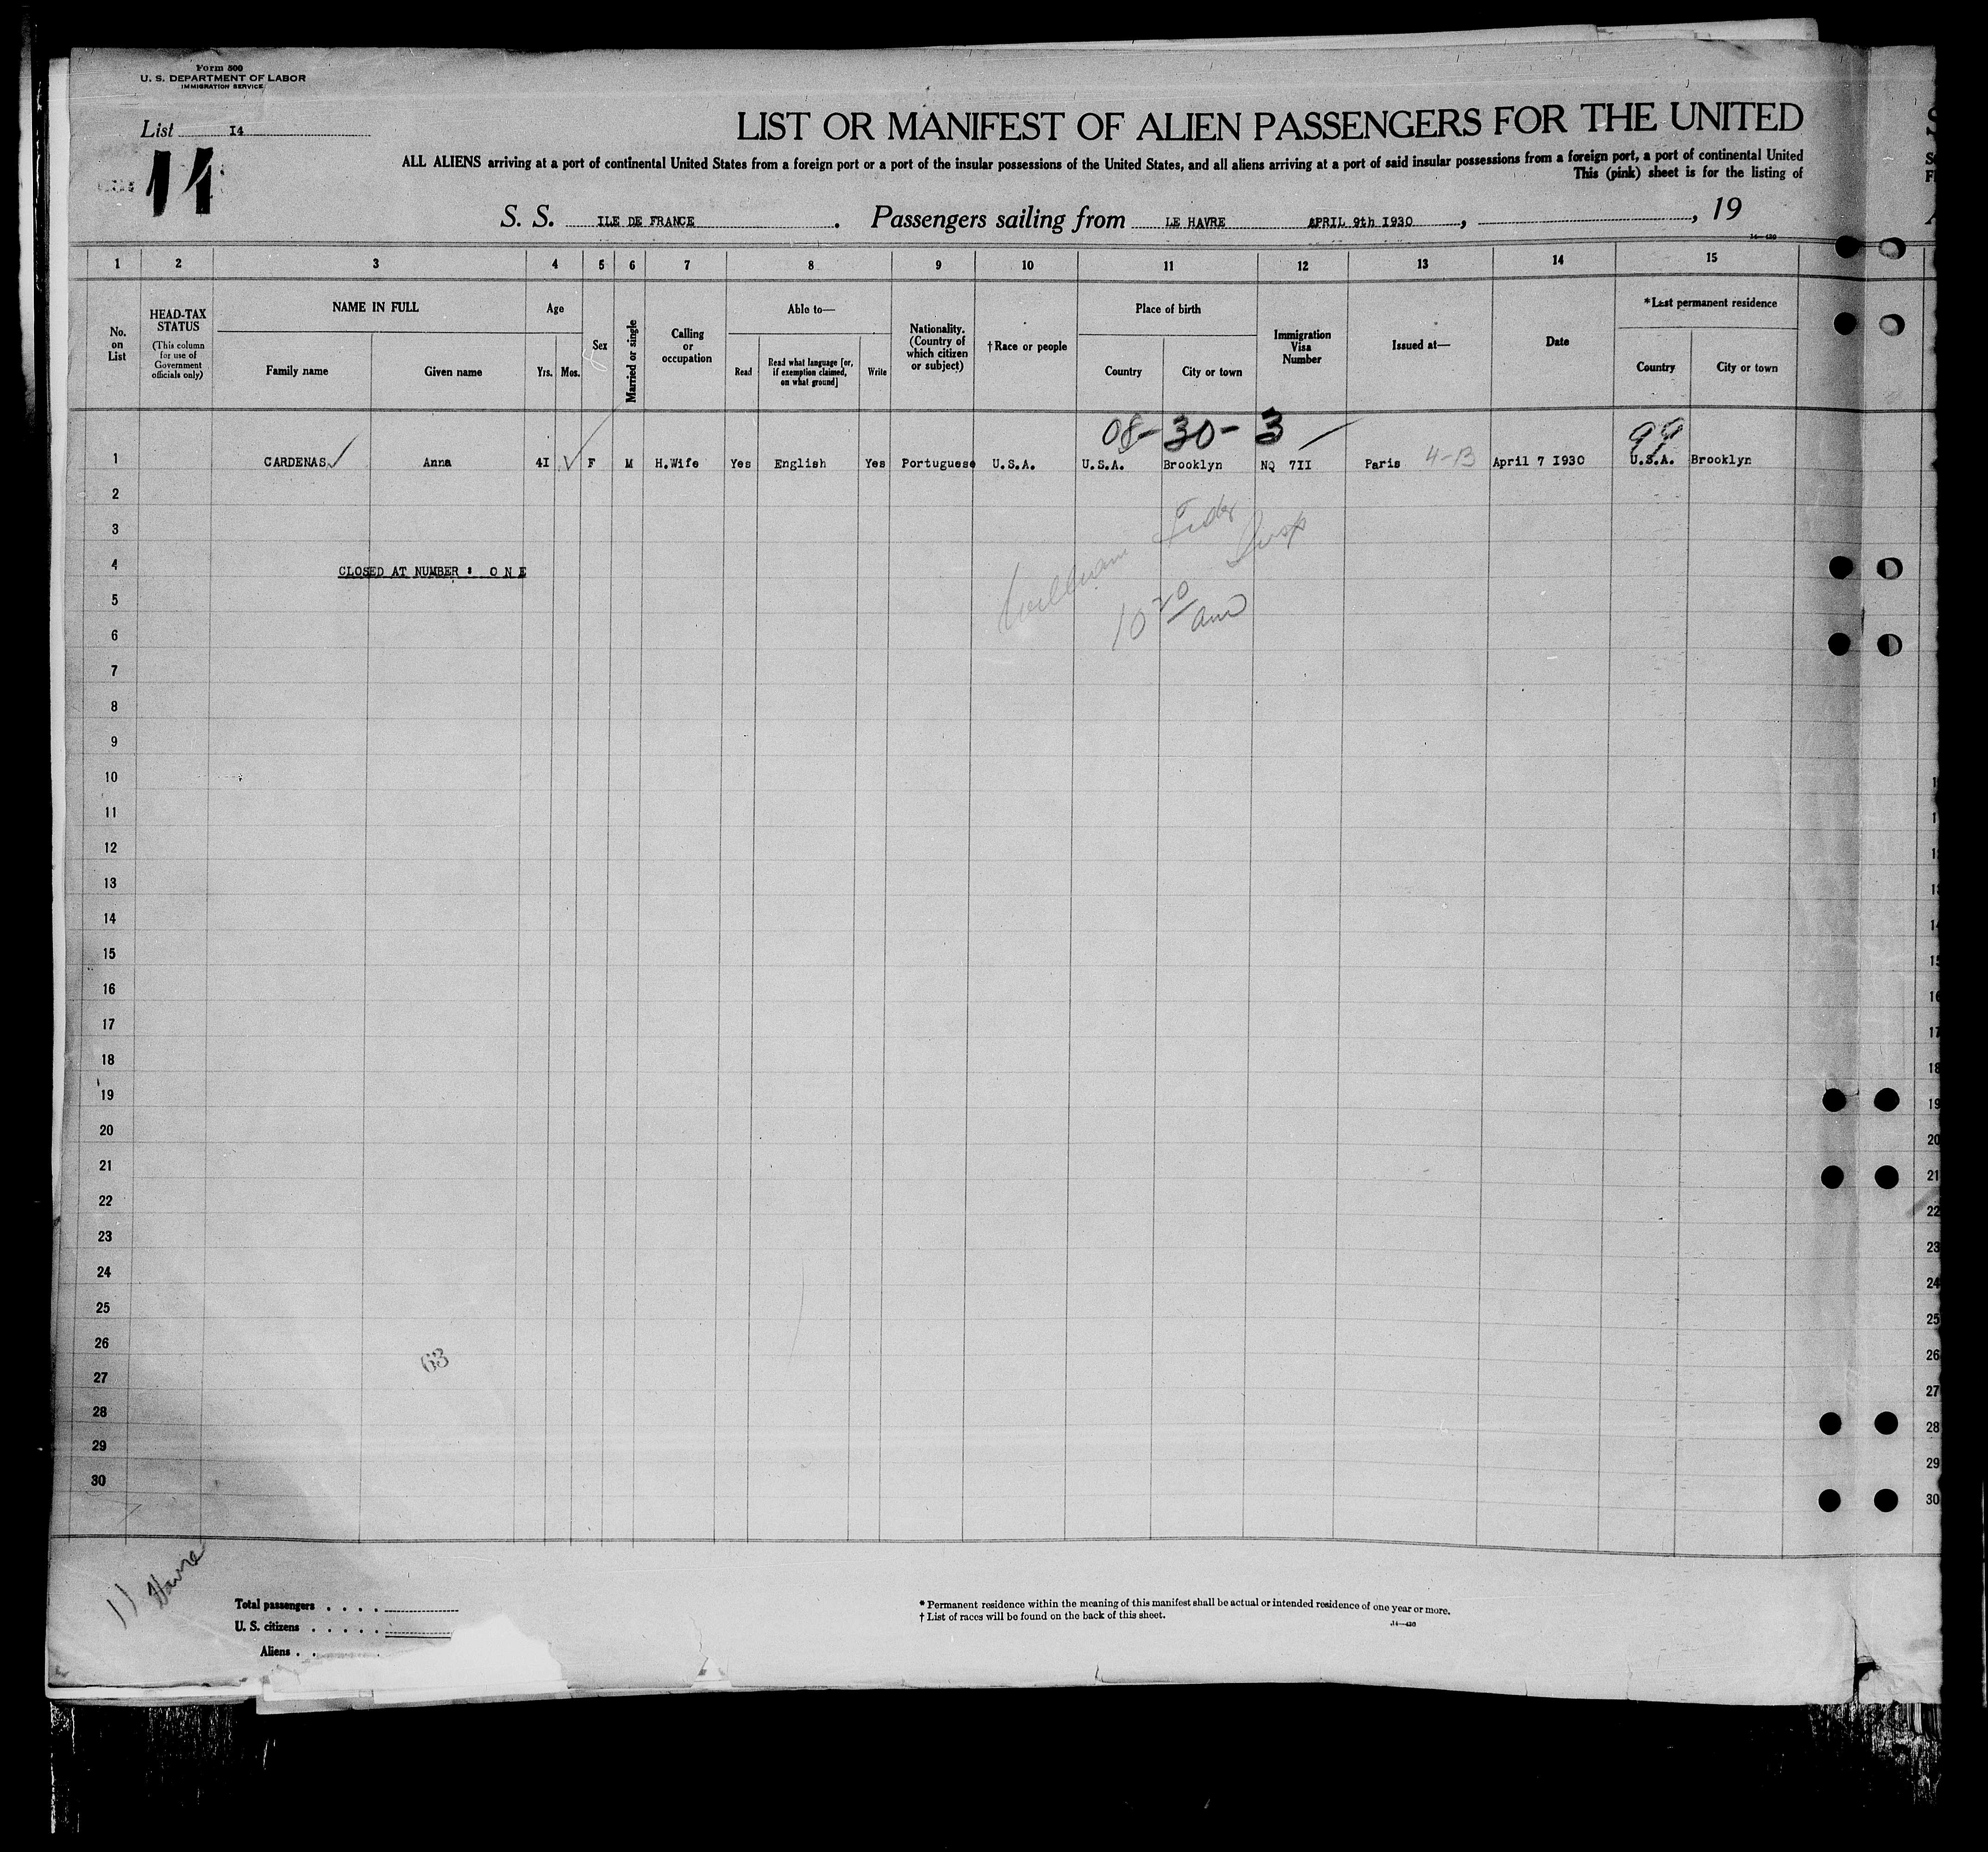 Form 500
U. S. DEPARTMENT OF LABOR
IMMIGRATION SERVICE
List I4
14
LIST OR MANIFEST OF ALIEN PASSENGERS FOR THE UNITED
ALL ALIENS arriving at a port of continental United States from a foreign port or a port of the insular possessions of the United States, and all aliens arriving at a port of said insular possessions from a foreign port, a port of continental United
This (pink) sheet is for the listing of
S. S. ILE DE FRANCE. Passengers sailing from LE HAVRE APRIL 9th I930, , 19
1 2 3 4 5 6 7 8 9 10 11 12 13 14 15
No. on List
HEAD-TAX STATUS
(This column for use of Government officials only)
NAME IN FULL
Family name Given name
Age
Yrs. Mos.
Sex
Married or single
Calling or occupation
Able to—
Read
Read what language [or, if exemption claimed, on what ground]
Write
Nationality. (Country of which citizen or subject)
†Race or people
Place of birth
Country City or town
Immigration Visa Number
Issued at—
Date
*Last permanent residence
Country City or town
08-30-3 99
1 CARDENAS Anna 4I F M H.Wife Yes English Yes Portuguese U.S.A. U.S.A. Brooklyn NQ 7II Paris 4-13 April 7 I930 U.S.A. Brooklyn
2
3
4 CLOSED AT NUMBER : O N E
5
10 20 am
6
7
8
9
10
11
12
13
14
15
16
17
18
19
20
21
22
23
24
25
26
63
27
28
29
30
11 Havre
Total passengers . . . .
U. S. citizens . . . . .
Aliens . .
* Permanent residence within the meaning of this manifest shall be actual or intended residence of one year or more.
† List of races will be found on the back of this sheet.
14—430